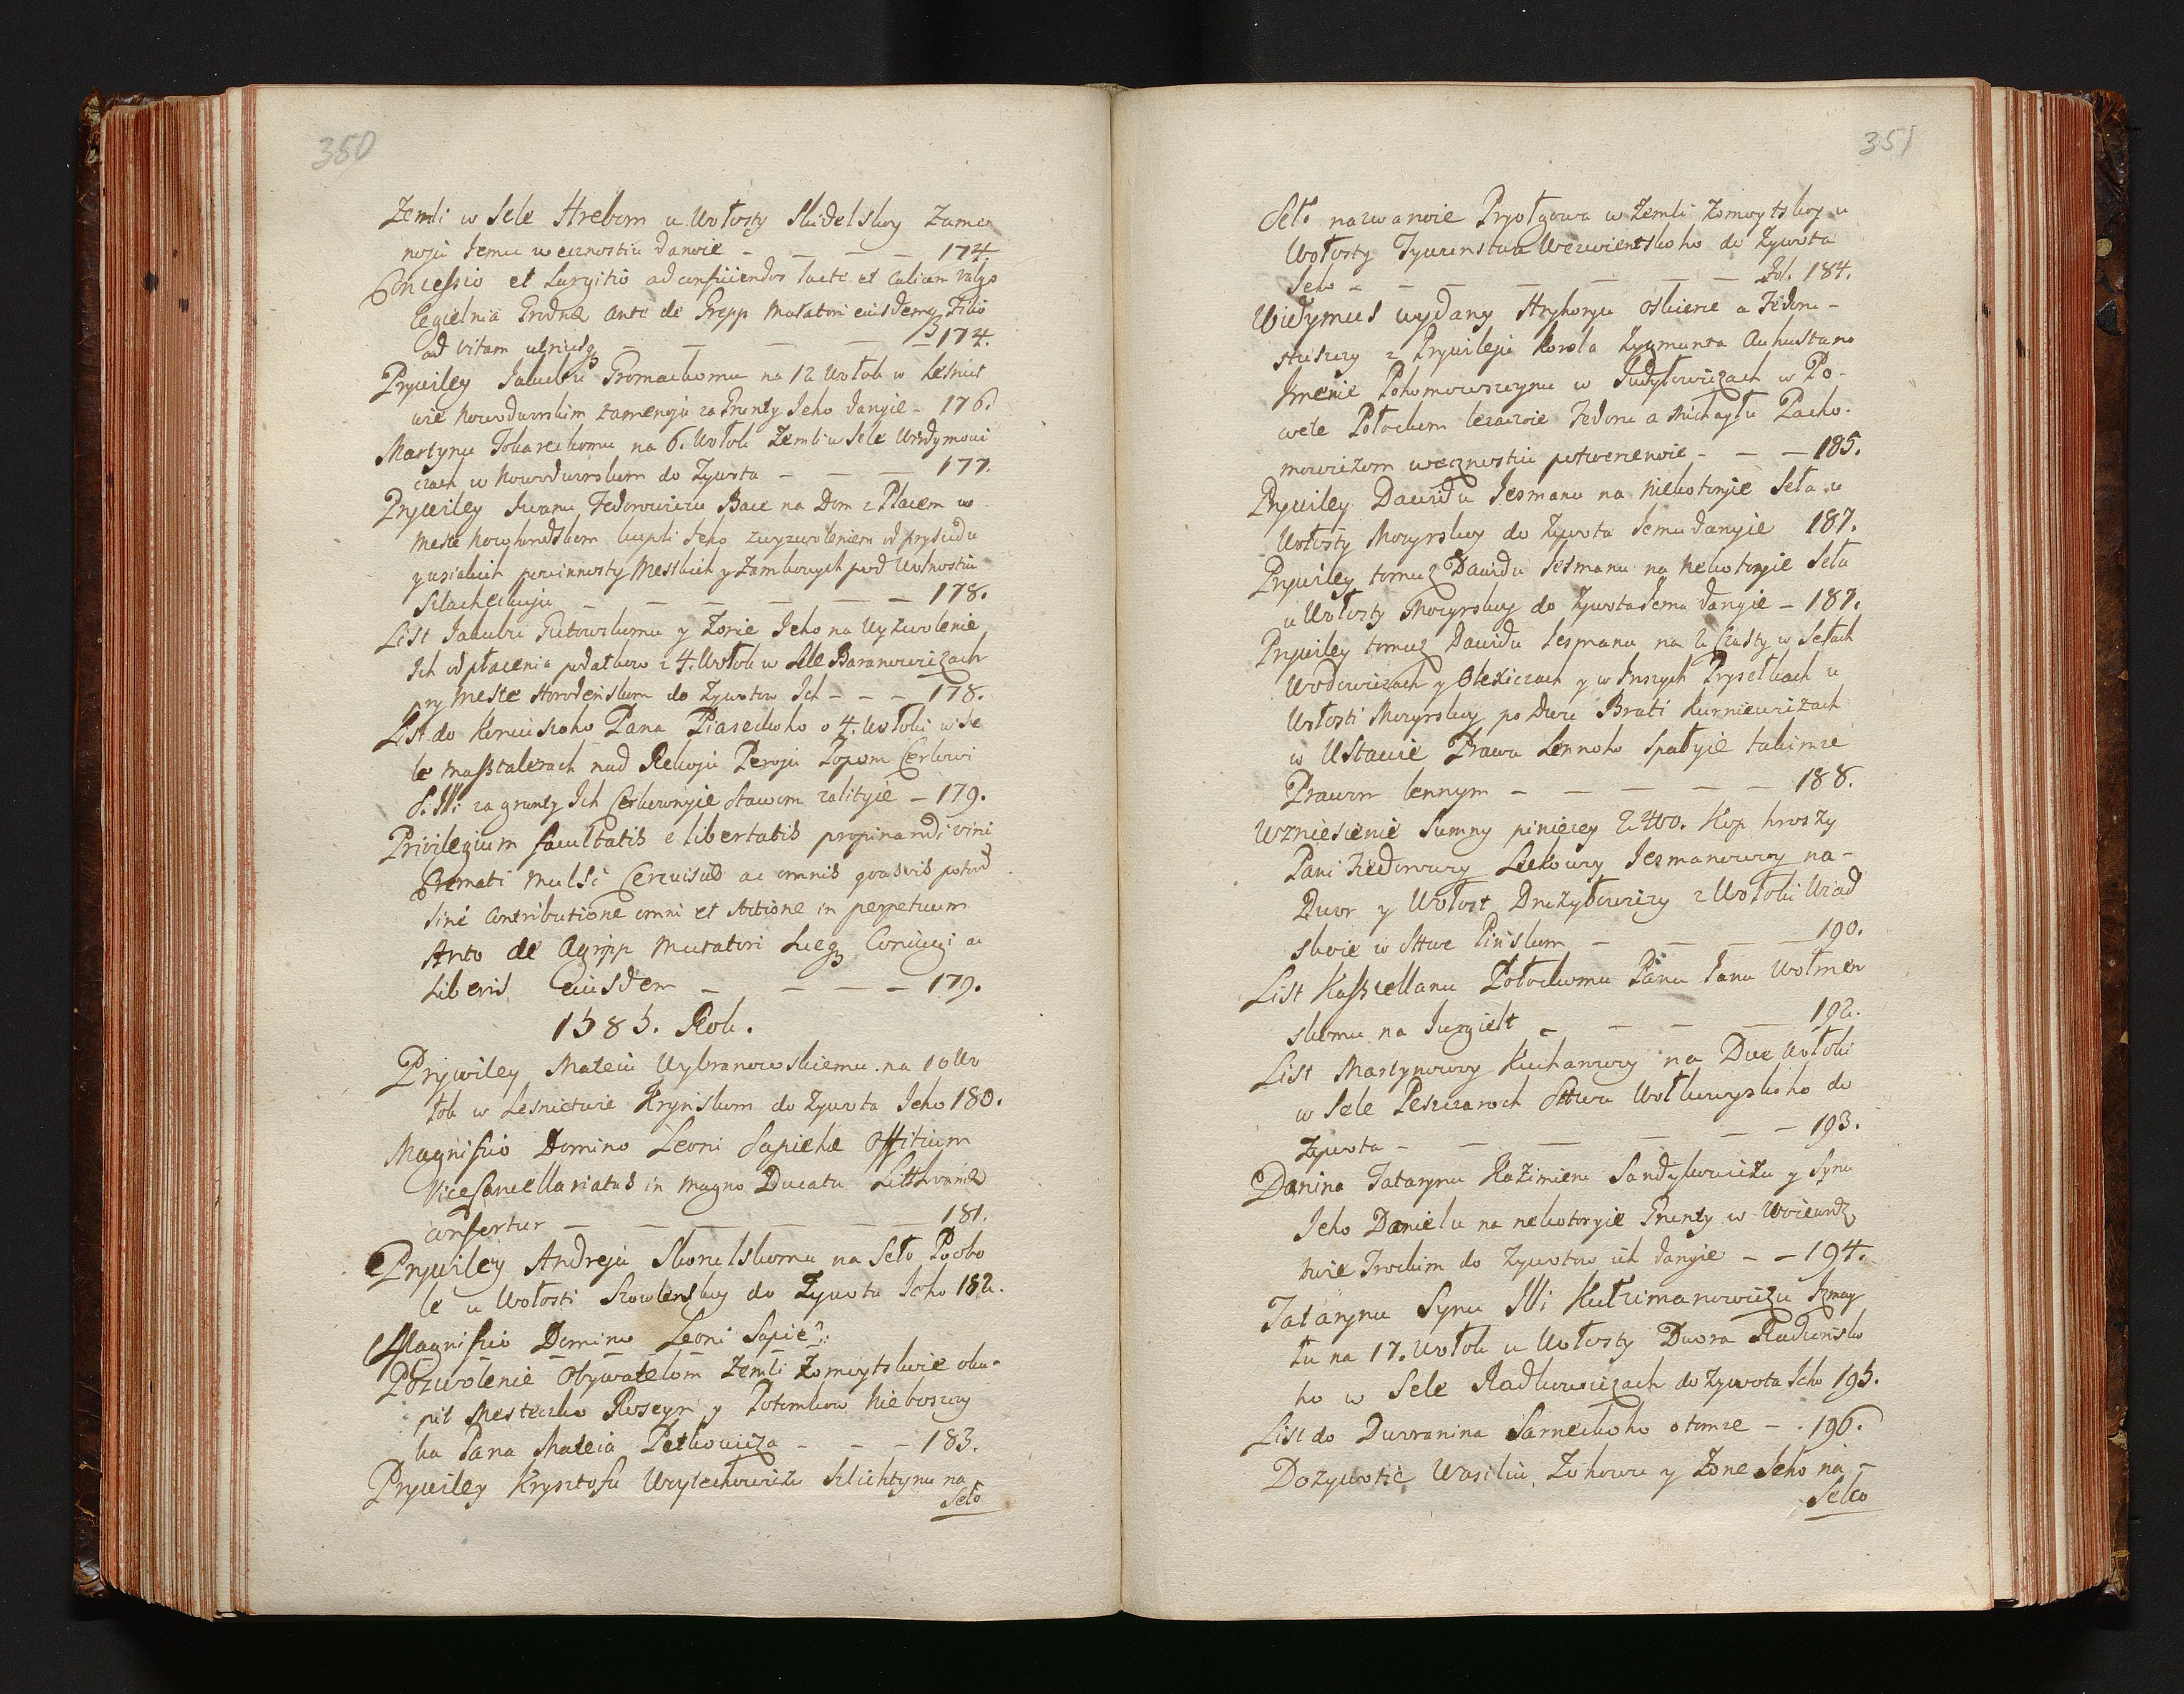 350
Zemli w Sele Hrebom u Wołosty Skidelskoy Zame
noju Jemu wecznostiu danoie - - - - 174.
Concessio et Largitio ad conficiendos lacte et calicem vulgo
Cegielnia Grodnæ Anto de Grepp Muratori eiusdemq Filio
ad vitam utriusq - - - - 174.
Prywiley Jakubu Gromackomu na 12 Wołok w Lesnict
wie Nowodworskim zamenoju za Grunty Jeho danyie - 176.
Martynu Tokareckomu na 6. Wołok Zemli w Sele Windymowi
czach w Nowodworskom do Żywota - - - 177.
Prywiley Iwanu Fedorowiczu Bace na Dom z Placem w
Meste Nowhorodskom kupli Jeho z wyzwoleniem od prysudu
y wsiakich powinnosty Mestkich y Zamkowych pod Wolnostiu
Szlacheckuju - - - - - 178.
List Jakubu Gutowskomu y Żonie Jeho na Wyzwolenie
Ich od płacenia podatkow z 4. Wołok w Sele Baranowiczach
pry Meste Horodenskom do Żywotow Ich - - - 178.
List do Koniuszoho Pana Piaseckoho o 4. Wołoki w Se
le Masztalerach nad Rekoju Peroju Popom Cerkwi
S. Illi za grunty Ich Cerkownyie stawom zalityie - 179.
Privilegium facultatis e libertatis propinandi vini
Cremati Mulsi Cervisiæ ac omnis quovis potus
sine Contributione omni et Actione in perpetuum
Anto de Agripp Muratori Suæq Coniugi ac
Liberis eiusdem - - - - 179.
1585. Rok.
Prywiley Mateiu Wybranowskiemu na 10 Wo
łok w Lesnictwie Krynskom do Żywota Jeho 180.
Magnifico Domino Leoni Sapiehæ Offitium
ViceCancellariatus in Magno Ducatu Litthvaniæ
confertur - - - - - 181.
Prywiley Andreju Skorulskomu na Seło Poobo
le u Wołosti Szowlenskoy do Żywota Jeho 182.
Magnifico Domino Leoni Sapie?:
Pozwolenie Obywatelom Zemli Żomoytskoie oku-
pit Mesteczko Roseyn y Potomkow Nieboszczy
ka Pana Mateia Petkowicza - - - 183.
Prywiley Krysztofu Woytechowiczu Szlichtynu na
Seło
351
Seło nazwanoie Pryołgowa w Zemli Żomoytskoy u
Wołosty Tywunstwa Weszwientskoho do Żywota
Jeho - - - - - - Fol. 184.
Widymus wydany Hryhoryu Oskierce a Fedoru -
z Prywileju Korola Zygmunta Auhusta na
Imenie Pohomowszczynu w Sudyłowiczach w Po-
wete Połockom leżaczoie Fedoru a Michayłu Pacho-
mowiczom wecznostiu potwerżenoie - - - 185.
Prywiley Dawidu Jesmanu na niekotoryie Seła u
Wołosty Mozyrskoy do Żywota Jemu danyie 187.
Prywiley tomuż Dawidu Jesmanu na nekotoryie Seła
u Wołosty Mozyrskoy do Żywota Jemu danyie - 187.
Prywiley tomuż Dawidu Jesmanu na 2 Czasty w Sełach
Wodowiczach y Olexiczach y w Inszych Prysełkach u
Wołosti Mozyrskoy po Dwu Brati Kurniewiczach
w Ustawie Prawa Lennoho Spałyie takimze
Prawom lennym - - - - - 188.
Wzniesienie Summy pinieżey 2400. Kop hroszy
Pani Fiedorowoy Lenkowoy Jesmanowoy na-
Dwor y Wołost Drużyłowiczy z Wołoki Wiad
skoie w Sttwe Pinskom - - - 190.
List Kasztellanu Połockomu Panu Janu Wołmin
skomu na Jurgielt - - - - 192.
List Martynowoy Kucharowoy na Dwe Wołoki
w Sele Peszczaroch Sttwa Wołkowyskoho do
Żywota - - - - - 193.
Danina Tatarynu Kazimieru Sandykowiczu y Synu
Jeho Danielu na nekotoryie Grunty w Woiewodz
twie Trockim do Żywotow ich danyie - - 194.
Tatarynu Synu Illi Kułzimanowiczu Izmay
łu na 17. Wołok u Wołosty Dwora Radunsko
ho w Sele Radkowiczach do Żywota Jeho 195.
List do Dworanina Sarneckoho o tomze - . 196.
Dożywotie Wasiliu Zohowu y Żone Jeho na -
Selco